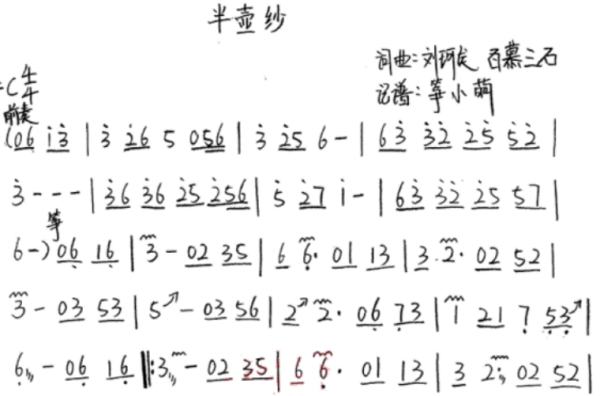 半壶纱
词曲:刘珂矣 百慕三石
=C 4/4
记谱:筝小萌
前奏
(06 i̇3̇ | 3̇ 2̇6 5 056 | 3̇ 2̇5 6 - | 63̇ 3̇2̇ 2̇5 52̇ |
3̇ - - - | 3̇6 3̇6 2̇5 2̇56 | 5 2̇7 i̇ - | 63̇ 3̇2̇ 2̇5 57 |
筝
6 -) 06̣ 16̣ | 3 - 02 35 | 6 6̣· 01 13 | 3 2· 02 52 |
3 - 03 53 | 5↗ - 03 56 | 2↗ 2· 06̣ 7̣3̣ | 1 21 7̣ 5̣3̣↗ |
6̣ - 06̣ 16̣ ‖: 3 - 02 35 | 6 6̣· 01 13 | 3 2· 02 52 |